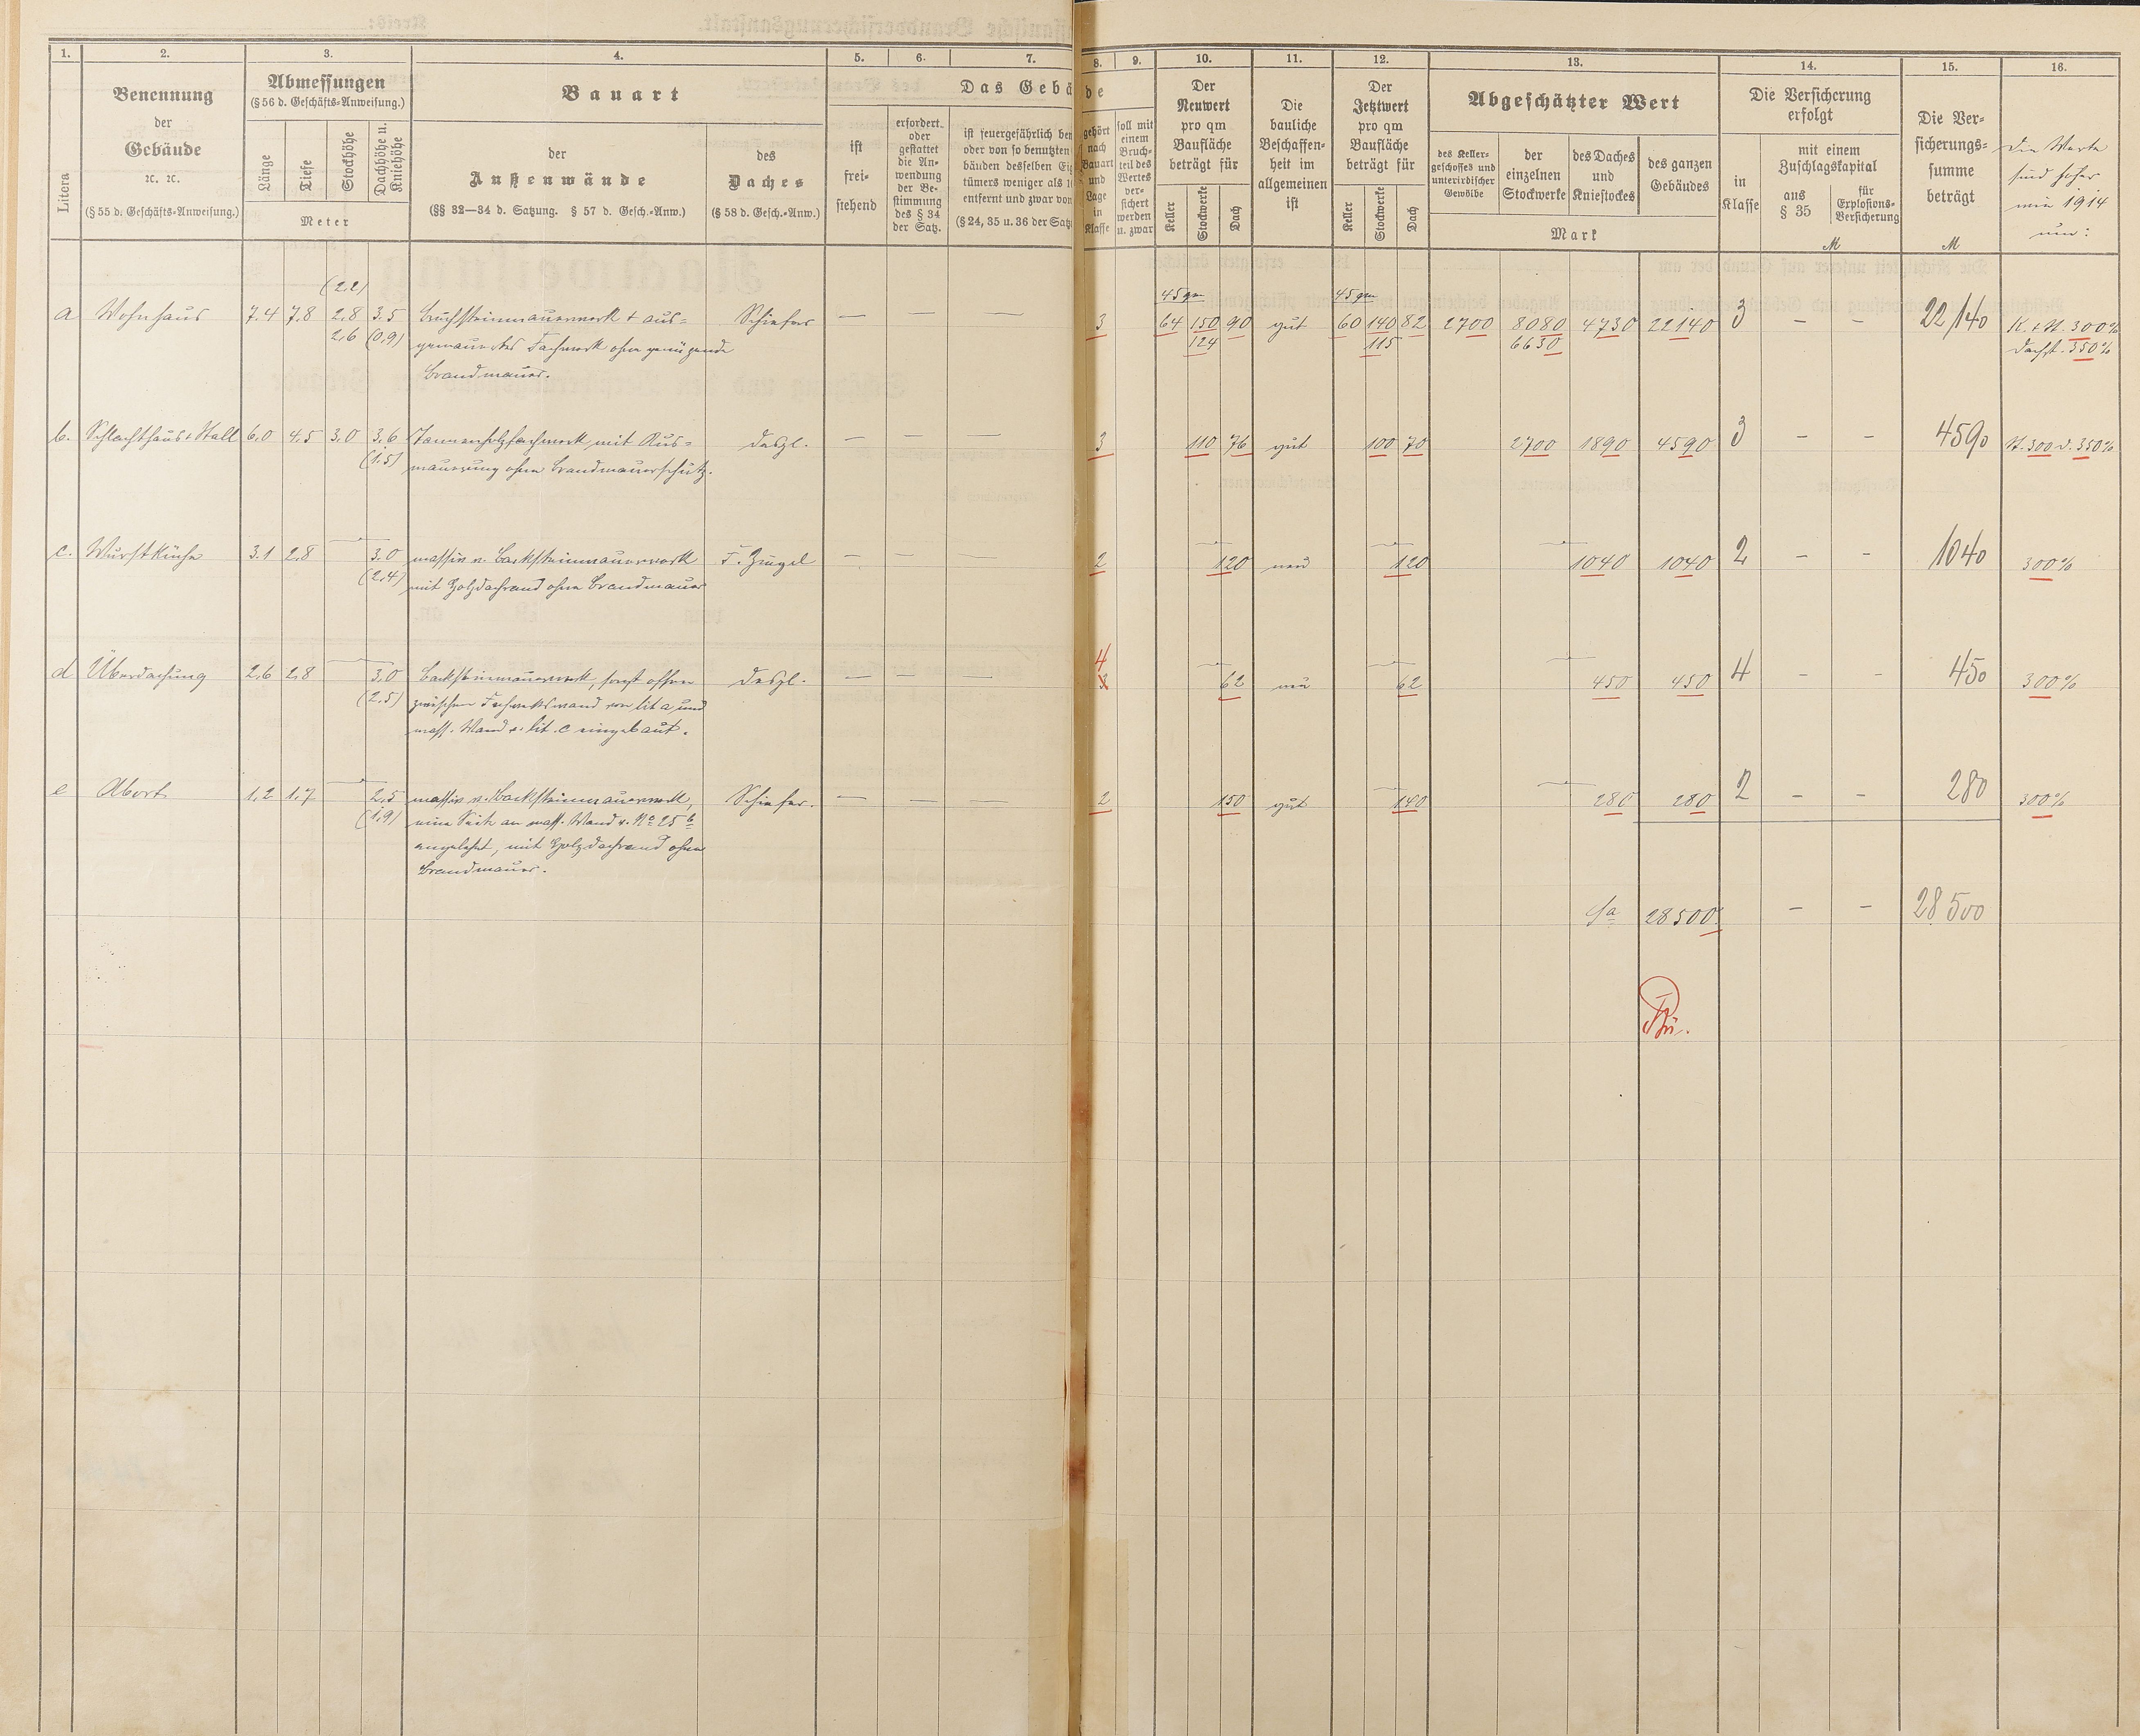 1. 2. 3. 4. 5. 6. 7. 8. 9. 10. 11. 12. 13. 14. 15. 16.
Litera
Benennung
der
Gebäude
ꝛc. ꝛc.
(§ 55 d. Geschäfts-Anweisung.)
Abmessungen
(§ 56 d. Geschäfts-Anweisung.)
Länge
Tiefe
Stockhöhe
Dachhöhe u.
Kniehöhe
Meter
Bauart
der
Außenwände
(§§ 32—34 d. Satzung. § 57 d. Gesch.-Anw.)
des
Daches
(§ 58 d. Gesch.-Anw.)
Das Gebä
de
ist
frei-
stehend
erfordert
oder
gestattet
die An-
wendung
der Be-
stimmung
des § 34
der Satz.
ist feuergefährlich ben
oder von so benutzten
bäuden desselben Eig
tümers weniger als 1
entfernt und zwar von
(§ 24, 35 u. 36 der Satz
gehört
nach
Bauart
und
Lage
in
Klasse
soll mit
einem
Bruch-
teil des
Wertes
ver-
sichert
werden
u. zwar
Der
Neuwert
pro qm
Baufläche
beträgt für
Keller
Stockwerke
Dach
Die
bauliche
Beschaffen-
heit im
allgemeinen
ist
Der
Jetztwert
pro qm
Baufläche
beträgt für
Keller
Stockwerke
Dach
Abgeschätzter Wert
des Keller-
geschosses und
unterirdischer
Gewölbe
der
einzelnen
Stockwerke
des Daches
und
Kniestockes
des ganzen
Gebäudes
Mark
Die Versicherung
erfolgt
in
Klasse
mit einem
Zuschlagskapital
aus
§ 35
für
Explosions-
Versicherung
M
Die Ver-
sicherungs-
summe
beträgt
M
Die Werte
sind höher
wie 1914
um:
(2,2) 45 qm 45 qm
a Wohnhaus 7.4 7,8 2,8 3.5 Bruchsteinmauerwerk + aus= Schiefer — — — 3 64 150 90 gut 60 140 82 2700 8080 4730 22140 3 — — 22140 K. + St. 300%
2,6 (0,9) gemauertes Fachwerk ohne genügende 124 115 6630 Dachst. 350%
Brandmauer.
b. Schlachthaus + Stall 6,0 4,5 3,0 3,6 Tannenholzfachwerk mit Aus= desgl. — — — 3 110 76 gut 100 70 2700 1890 4590 3 — — 4590 St. 300 D. 350%
(1,5) mauerung ohne Brandmauerschutz.
c. Wurstküche 3.1 2,8 3,0 massiv v. Backsteinmauerwerk F. Ziegel — — — 2 120 neu 120 1040 1040 2 — — 1040 300%
(2,4) mit Holzdachrand ohne Brandmauer
4
d Überdachung 2,6 2,8 3,0 Backsteinmauerwerk, sonst offen desgl. — — — 3 62 neu 62 450 450 4 — — 450 300%
(2,5) zwischen Fachwerkswand von lit a und
mass. Wand v. lit. c eingebaut.
e Abort 1,2 1,7 2,5 massiv v. Backsteinmauerwerk, Schiefer. — — — 2 150 gut 140 280 280 2 — — 280 300%
(1,9) eine Seite an mass. Wand v. No 25 b
angelehnt, mit Holzdachrand ohne
Brandmauer.
Sa 28500 — — 28500